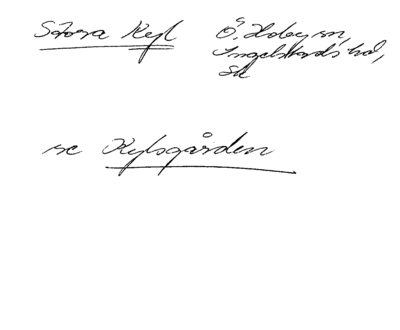 Stora Kyl Ö. Hoby sn,
Ingelstads hd,
Sk
se Kylsgården